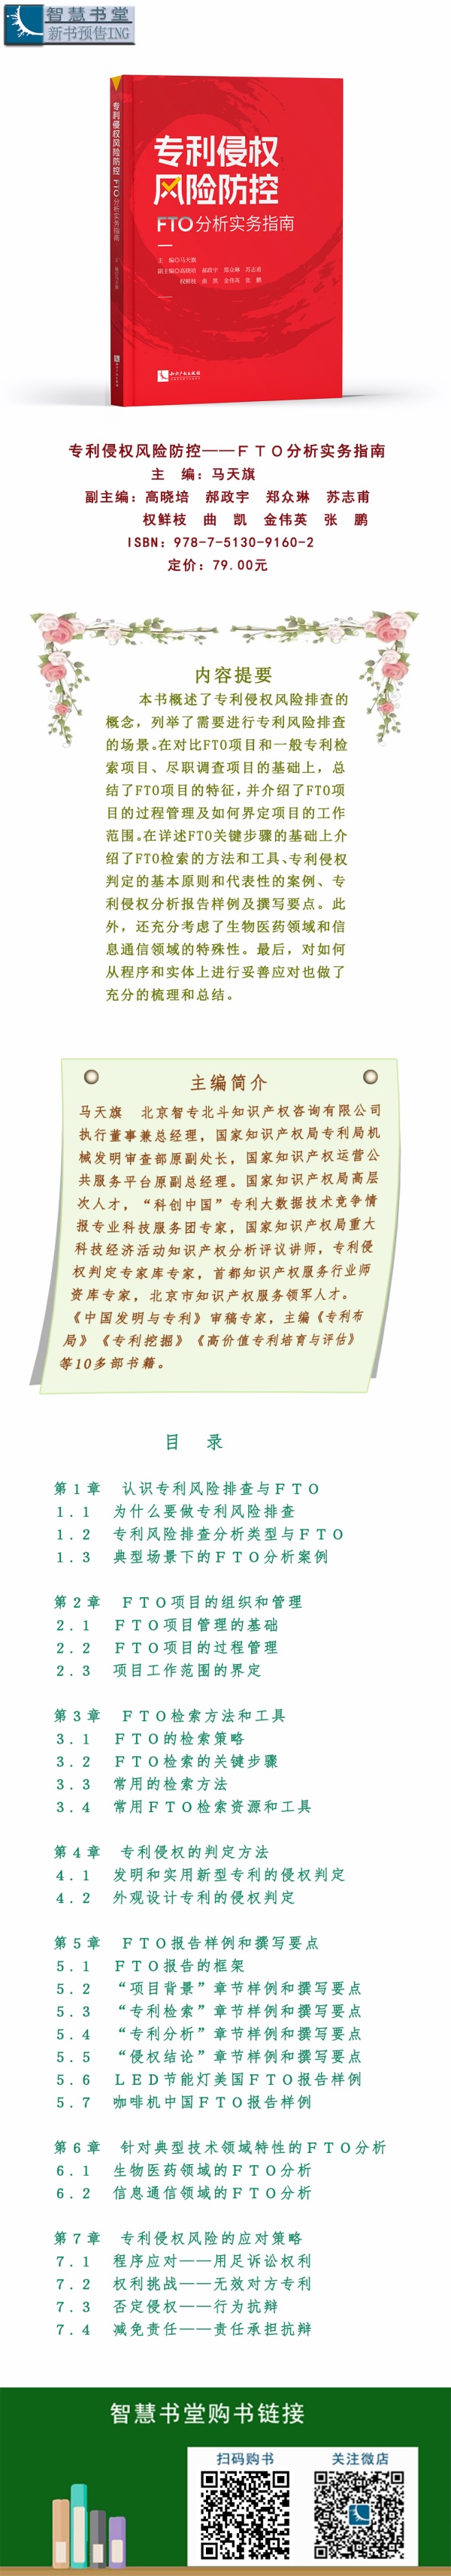 智慧书堂
新书预售ING
专利侵权风险防控 FTO分析实务指南
主 编◎马天旗
专利侵权
风险防控
FTO分析实务指南
主 编◎马天旗
副主编◎高晓培 郝政宇 郑众琳 苏志甫
权鲜枝 曲 凯 金伟英 张 鹏
知识产权出版社
专利侵权风险防控——FTO分析实务指南
主 编：马天旗
副主编：高晓培 郝政宇 郑众琳 苏志甫
权鲜枝 曲 凯 金伟英 张 鹏
ISBN：978-7-5130-9160-2
定价：79.00元
内容提要
本书概述了专利侵权风险排查的
概念，列举了需要进行专利风险排查
的场景。在对比FTO项目和一般专利检
索项目、尽职调查项目的基础上，总
结了FTO项目的特征，并介绍了FTO项
目的过程管理及如何界定项目的工作
范围。在详述FTO关键步骤的基础上介
绍了FTO检索的方法和工具、专利侵权
判定的基本原则和代表性的案例、专
利侵权分析报告样例及撰写要点。此
外，还充分考虑了生物医药领域和信
息通信领域的特殊性。最后，对如何
从程序和实体上进行妥善应对也做了
充分的梳理和总结。
主编简介
马天旗 北京智专北斗知识产权咨询有限公司
执行董事兼总经理，国家知识产权局专利局机
械发明审查部原副处长，国家知识产权运营公
共服务平台原副总经理。国家知识产权局高层
次人才，“科创中国”专利大数据技术竞争情
报专业科技服务团专家，国家知识产权局重大
科技经济活动知识产权分析评议讲师，专利侵
权判定专家库专家，首都知识产权服务行业师
资库专家，北京市知识产权服务领军人才。
《中国发明与专利》审稿专家，主编《专利布
局》《专利挖掘》《高价值专利培育与评估》
等10多部书籍。
目 录
第1章 认识专利风险排查与FTO
1.1 为什么要做专利风险排查
1.2 专利风险排查分析类型与FTO
1.3 典型场景下的FTO分析案例
第2章 FTO项目的组织和管理
2.1 FTO项目管理的基础
2.2 FTO项目的过程管理
2.3 项目工作范围的界定
第3章 FTO检索方法和工具
3.1 FTO的检索策略
3.2 FTO检索的关键步骤
3.3 常用的检索方法
3.4 常用FTO检索资源和工具
第4章 专利侵权的判定方法
4.1 发明和实用新型专利的侵权判定
4.2 外观设计专利的侵权判定
第5章 FTO报告样例和撰写要点
5.1 FTO报告的框架
5.2 “项目背景”章节样例和撰写要点
5.3 “专利检索”章节样例和撰写要点
5.4 “专利分析”章节样例和撰写要点
5.5 “侵权结论”章节样例和撰写要点
5.6 LED节能灯美国FTO报告样例
5.7 咖啡机中国FTO报告样例
第6章 针对典型技术领域特性的FTO分析
6.1 生物医药领域的FTO分析
6.2 信息通信领域的FTO分析
第7章 专利侵权风险的应对策略
7.1 程序应对——用足诉讼权利
7.2 权利挑战——无效对方专利
7.3 否定侵权——行为抗辩
7.4 减免责任——责任承担抗辩
智慧书堂购书链接
扫码购书 关注微店